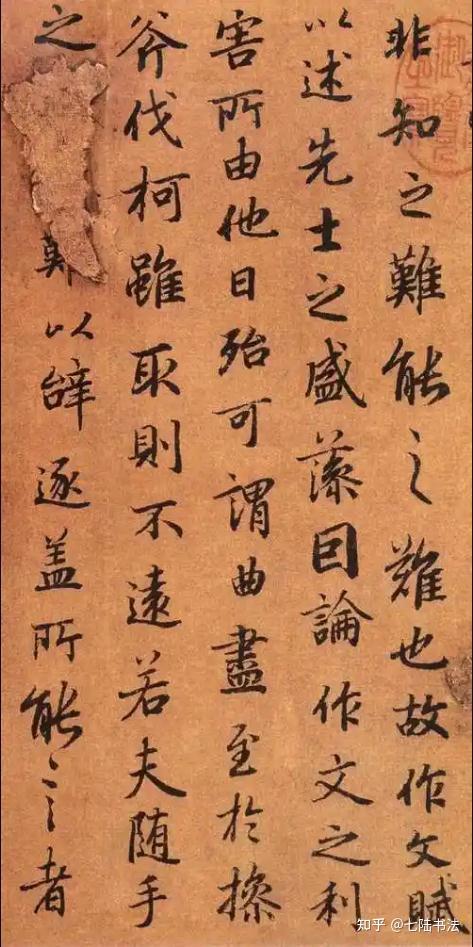 非知之難能之難也故作文賦
以述先士之盛藻因論作文之利
害所由他日殆可謂曲盡至於操
斧伐柯雖取則不遠若夫随手
之 難以辝逐盖所能之者
知乎 @七陆书法